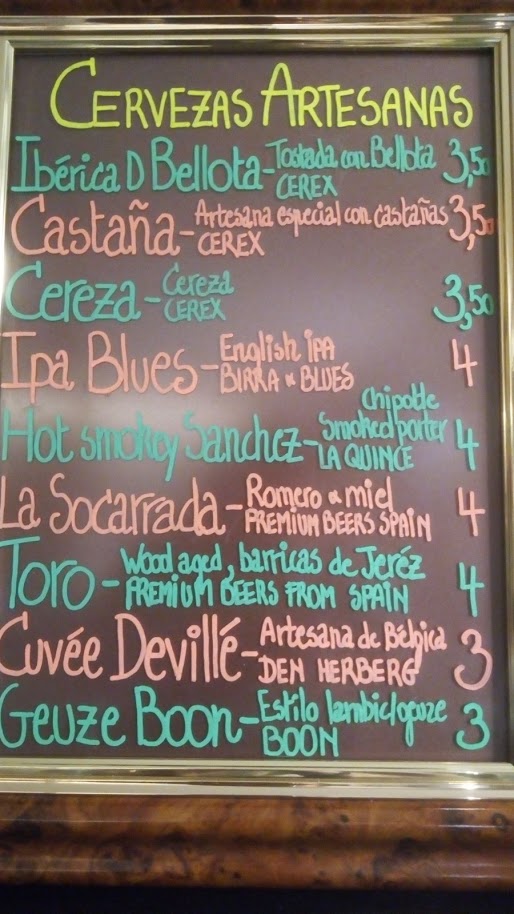 CERVEZAS ARTESANAS
Ibérica D Bellota - Tostada con Bellota 3,50
CEREX
Castaña - Artesana especial con castañas 3,50
CEREX
Cereza - Cereza 3,50
CEREX
Ipa Blues - English IPA 4
BIRRA & BLUES
Hot smokey Sanchez - Chipotle
Smoked porter 4
LA QUINCE
La Socarrada - Romero & miel 4
PREMIUM BEERS SPAIN
Toro - Wood aged, barricas de Jeréz 4
PREMIUM BEERS FROM SPAIN
Cuvée Devillé - Artesana de Bélgica 3
DEN HERBERG
Geuze Boon - Estilo lambic/geuze 3
BOON